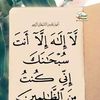 لَّآ إِلَٰهَ إِلَّآ أَنتَ
سُبْحَٰنَكَ
إِنِّي كُنتُ
مِنَ ٱلظَّٰلِمِينَ